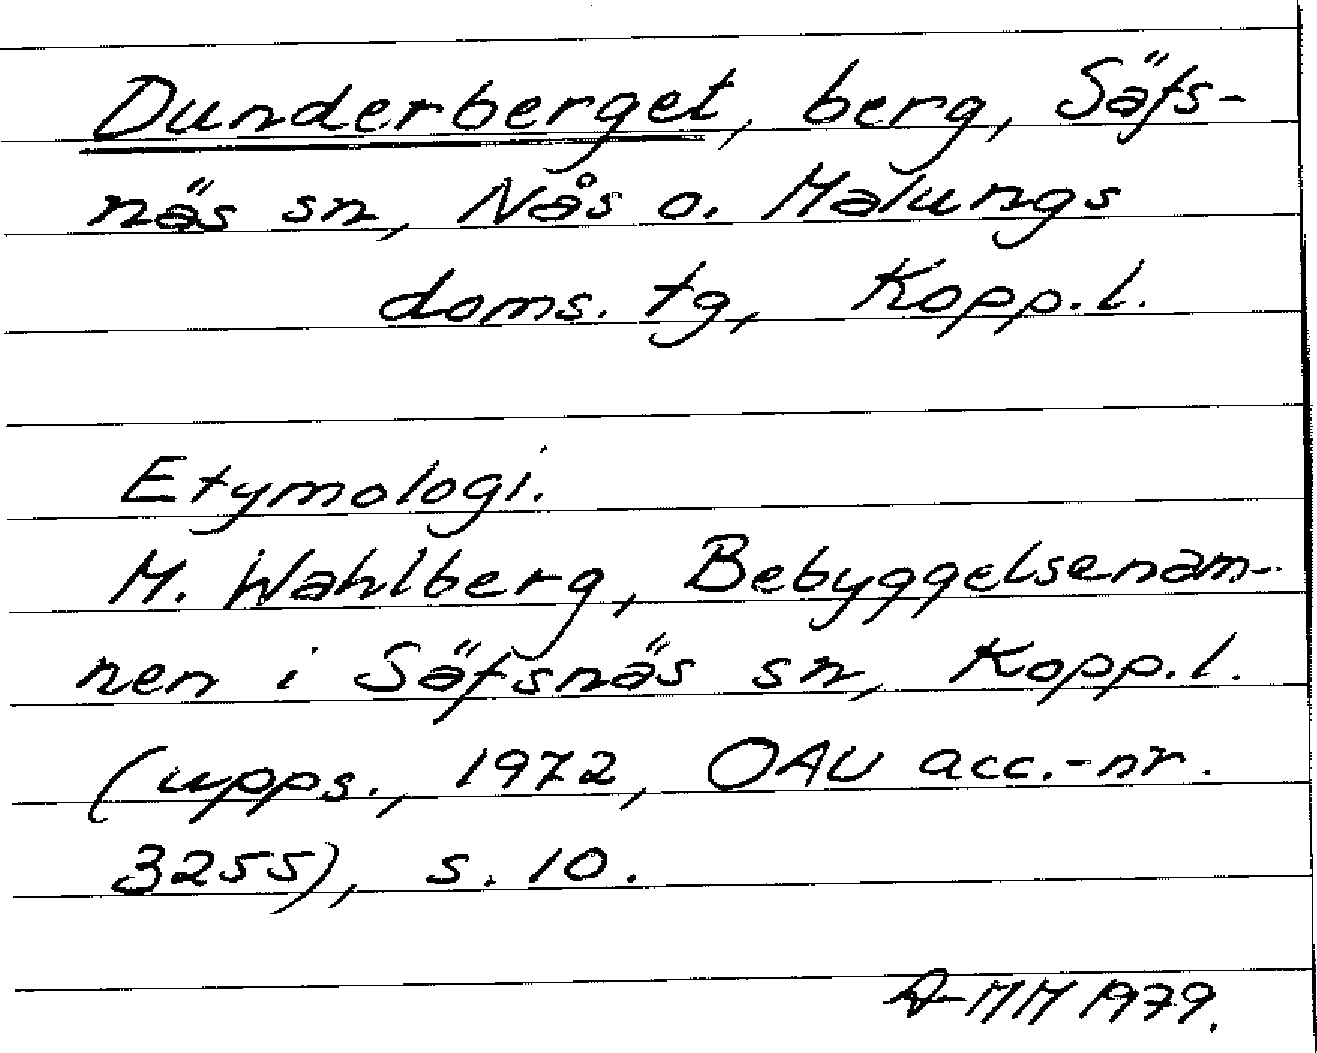 Dunderberget, berg, Säfs-
näs sn, Nås o. Malungs
doms. tg, Kopp.l.
Etymologi.
M. Wahlberg, Bebyggelsenam-
nen i Säfsnäs sn, Kopp.l.
(upps., 1972, OAU acc.-nr.
3255), s. 10.
A-MM 1979.